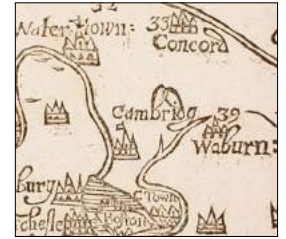 32
Water town: 33
Concord
Cambridg 39
Waburn:
bury
Town
Boston